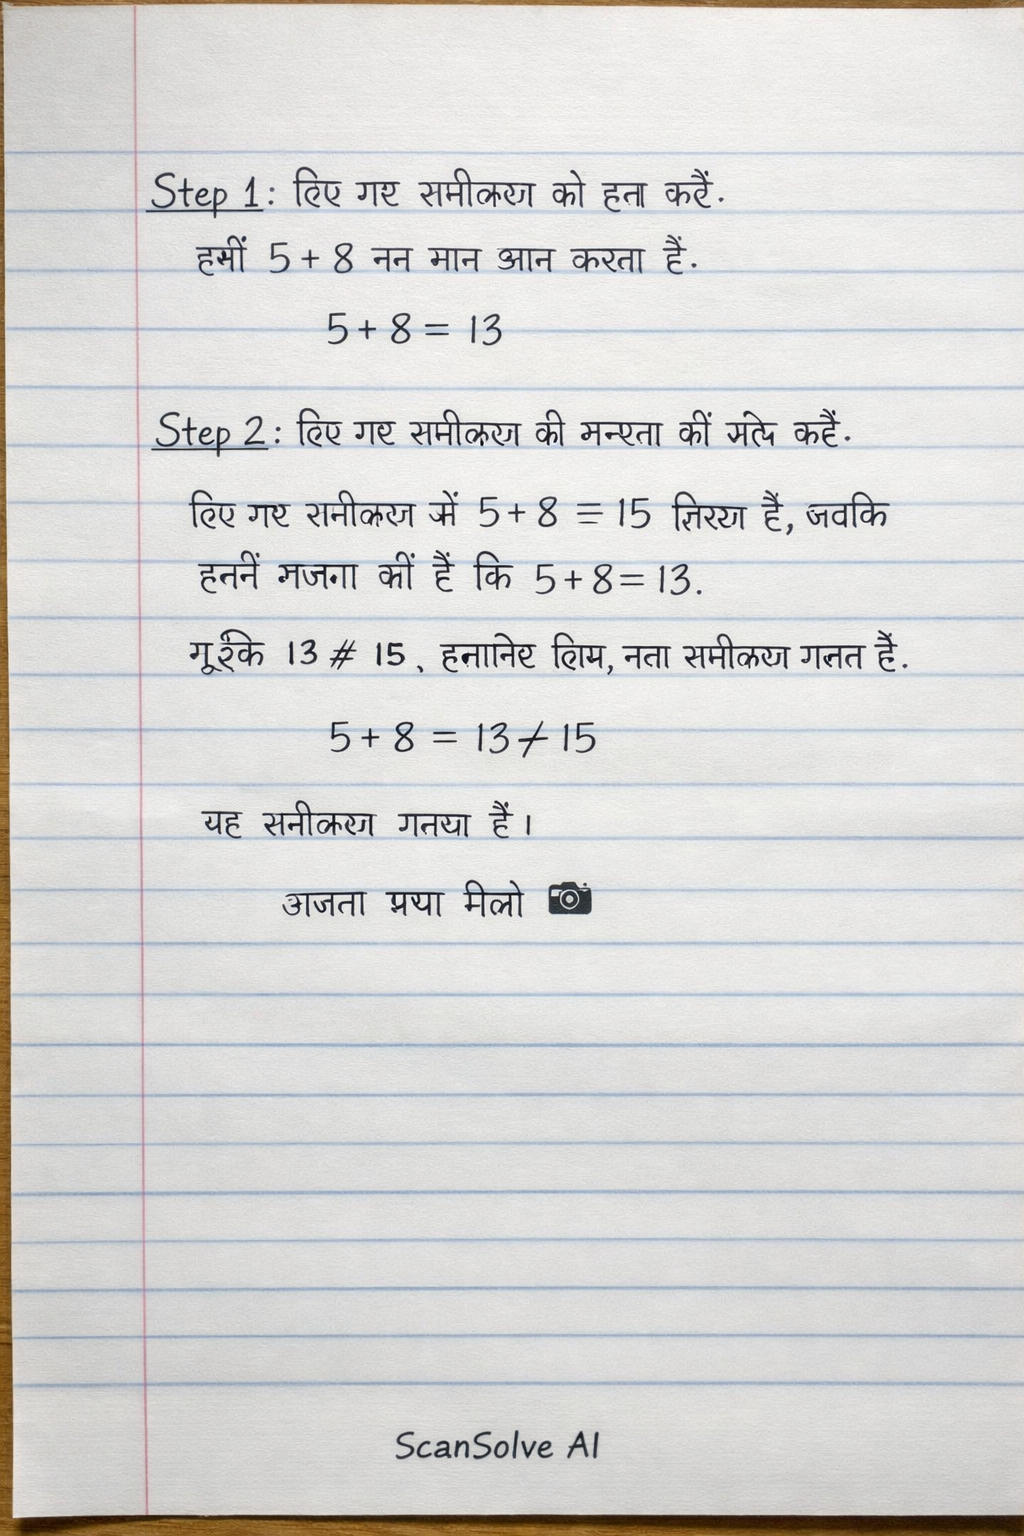 Step 1: लिए गए समीकरण को हता करैं.
हमीं 5 + 8 नन मान आन करता हैं.
5 + 8 = 13
Step 2: लिए गए समीकरण की मन्यता कीं करैं.
लिए गए सनीकरण में 5 + 8 = 15 हैं, जवकि
हननें मजगा कीं हैं कि 5 + 8 = 13.
13 # 15, लिय, नता समीकरण गनत हैं.
5 + 8 = 13 ≠ 15
यह सनीकरण गनया हैं।
अजता प्रया मीलो
ScanSolve AI